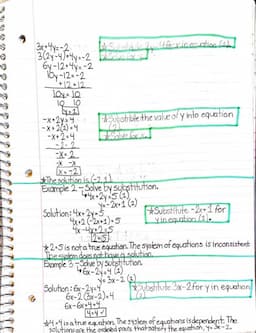 3x+4y=-2
3(2y-4)+4y=-2
6y-12+4y=-2
10y-12=-2
+12 +12
10y=10
10 10
y=1
-x+2y=4
-x+2(1)=4
-x+2=4
-2 -2
-x=2
-x=-2
*Substitute the value of y into equation
*Solve for x.
*The solution is (-2,1).
Example 2 - Solve by substitution.
4x+2y=5 (1)
y=-2x+1 (2)
Solution: 4x+2y=5
4x+2(-2x+1)=5
4x-4x+2=5
2=5
*Substitute -2x+1 for
y in equation (1).
*2=5 is not a true equation. The system of equations is inconsistent.
The system does not have a solution.
Example 3 - Solve by substitution.
6x-2y=4 (1)
y=3x-2 (2)
Solution: 6x-2y=4
6x-2(3x-2)=4
6x-6x+4=4
4=4
*Substitute 3x-2 for y in equation
*4=4 is a true equation. The system of equations is dependent. The
solutions are the ordered pairs that satisfy the equation y=3x-2.